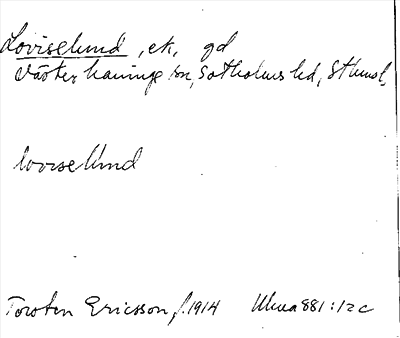 Loviselund, ek, gd
Västerhaninge sn, Sotholms hd, Sthmsl.
loviselund
Torsten Ericsson, f. 1914 Ukua 881:12c